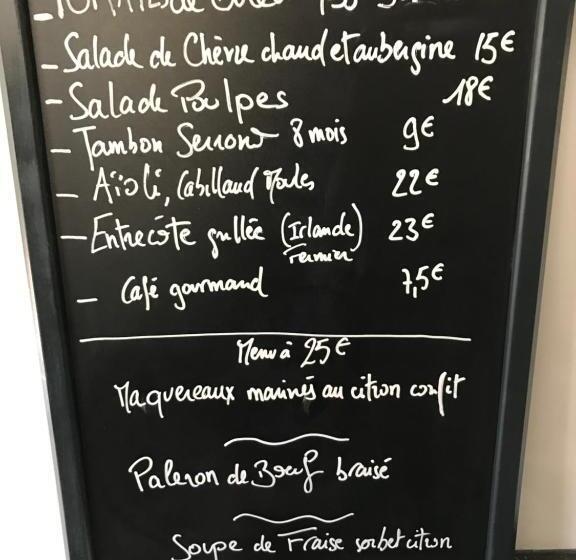 - Salade de Chèvre chaud et aubergine 15€
- Salade Poulpes 18€
- Jambon Serrano 8 mois 9€
- Aïoli, Cabillaud Moules 22€
- Entrecôte grillée (Irlande) 23€
Fermier
- Café gourmand 7,5€
Menu à 25€
Maquereaux marinés au citron confit
Paleron de Bœuf braisé
Soupe de Fraise sorbet citron